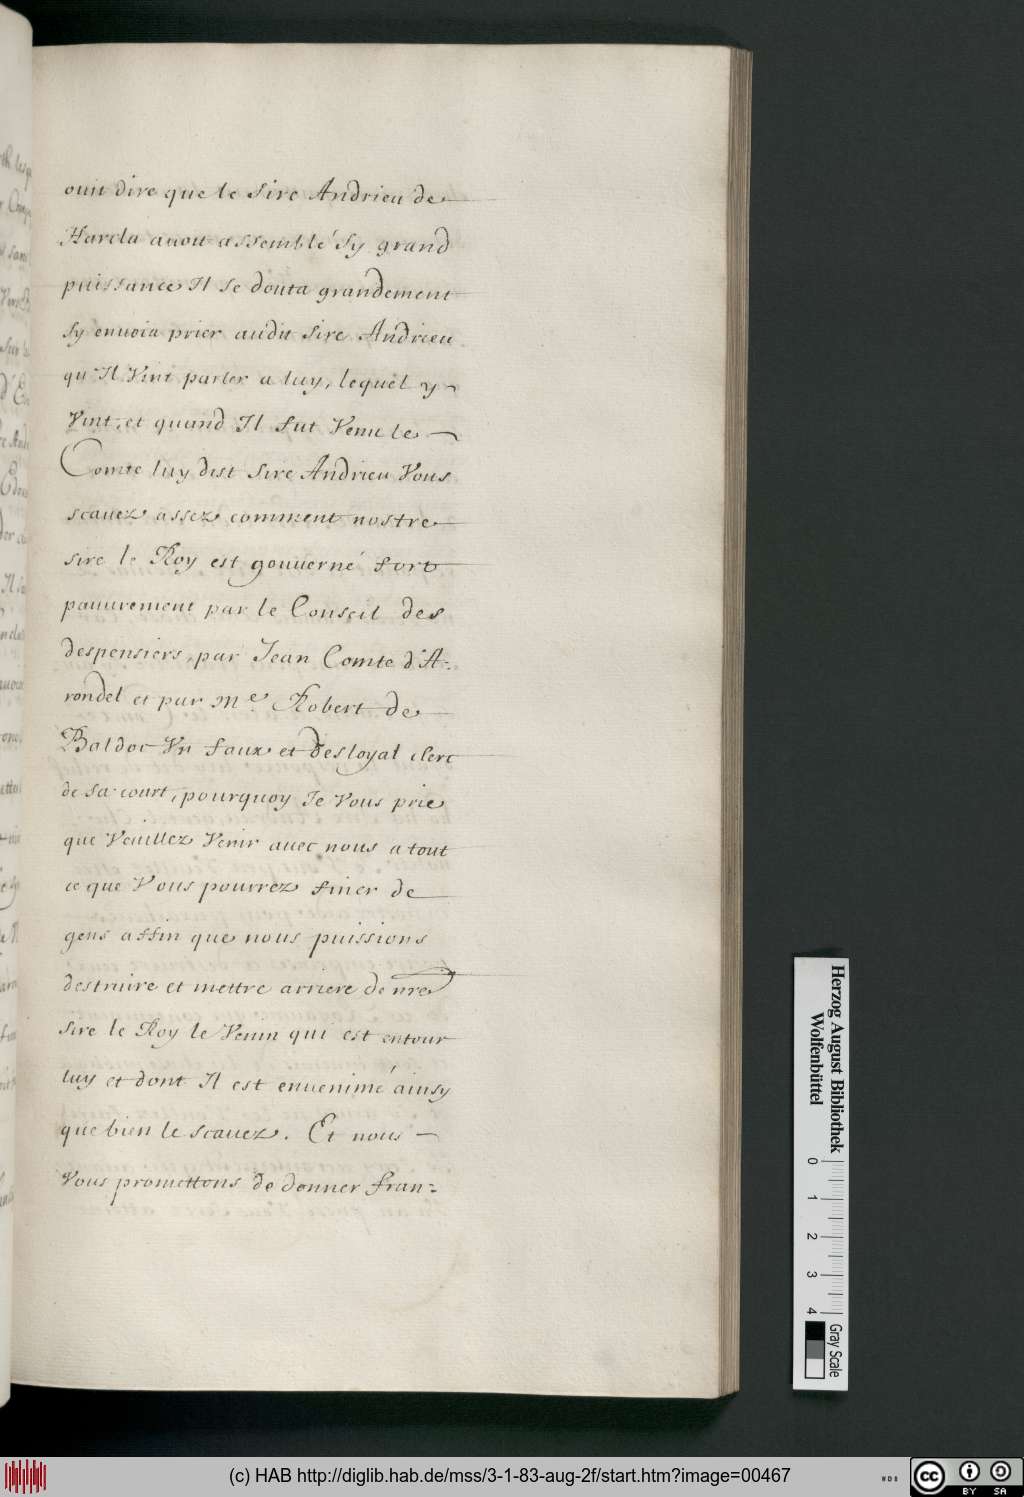 ouit dire que le Sire Andrieu de
Harcla auoit assemblé sy grand
puissance Il se douta grandement
sy enuoia prier audit Sire Andrieu
qu'Il Vint parler a luy, lequel y
Vint, et quand Il fut Venu le
Comte luy dist Sire Andrieu Vous
scauez assez comment nostre
sire le Roy est gouuerné fort
pauurement par le Conseil des
despensiers, par Jean Comte d'A-
rondel et par Me. Robert de
Baldoc Vn faux et desloyal clerc
de sa court, pourquoy Je Vous prie
que Veuillez Venir auec nous a tout
ce que Vous pourrez finer de
gens affin que nous puissions
destruire et mettre arriere de nre
sire le Roy le Venin qui est entour
luy et dont Il est enuenimé ainsy
que bien le scauez. Et nous
Vous promettons de donner fran=
Herzog August Bibliothek
Wolfenbüttel
0 1 2 3 4
Gray Scale
(c) HAB http://diglib.hab.de/mss/3-1-83-aug-2f/start.htm?image=00467
WDB
cc BY SA